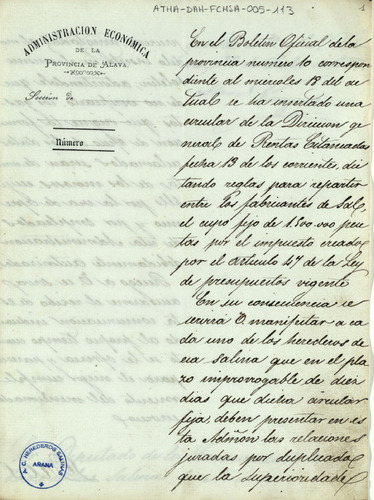 ATHA-DAH-FCHSA-005-113
1
ADMINISTRACION ECONÓMICA
DE LA
PROVINCIA DE ALAVA.
Seccion de
Número
En el Boletin Oficial de la
provincia numero 10 correspon
diente al miércoles 18 del ac
tual se ha insertado una
circular de la Direccion ge
neral de Rentas Estancadas
fecha 13 de los corrientes, dic
tando reglas para repartir
entre los fabricantes de Sal
el cupo fijo de 1.500.000 pese
tas por el impuesto creado
por el articulo 47 de la Ley
de presupuestos vigente
En su consecuencia se
servirá V. manifestar a ca
da uno de los herederos de
esa salina que en el pla
zo improrrogable de diez
dias que dicha circular
fija, deben presentar en es
ta Admon las relaciones
juradas por duplicado
que la superioridad
A.C. HEREDEROS SALINAS
AÑANA